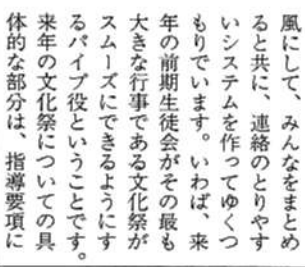 風にして、みんなをまとめ
ると共に、連絡のとりやす
いシステムを作ってゆくつ
もりでいます。いわば、来
年の前期生徒会がその最も
大きな行事である文化祭が
スムーズにできるようにす
るパイプ役ということです。
来年の文化祭についての具
体的な部分は、指導要項に